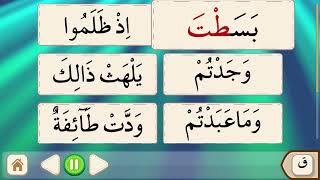 بَسَطْتَ
اِذْ ظَلَمُوا
وَجَدْتُمْ
يَلْهَثْ ذَالِكَ
وَمَاعَبَدْتُمْ
وَدَّتْ طَٓائِفَةٌ
ق